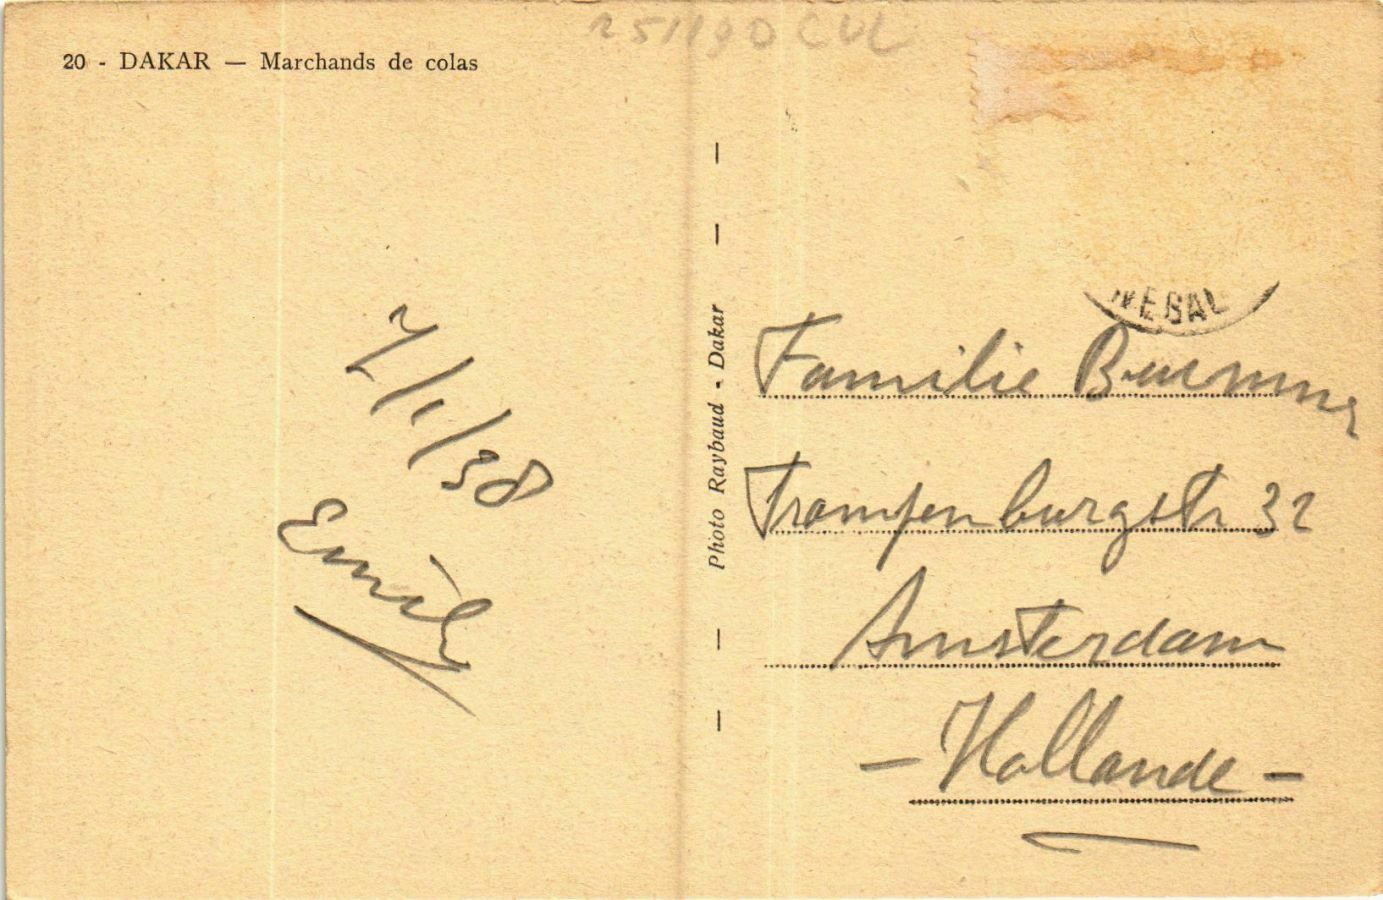 20 - DAKAR — Marchands de colas
7/1/38
Emile
Photo Raybaud - Dakar
NEGAL
Familie
Trompenburgstr 32
Amsterdam
- Hollande -